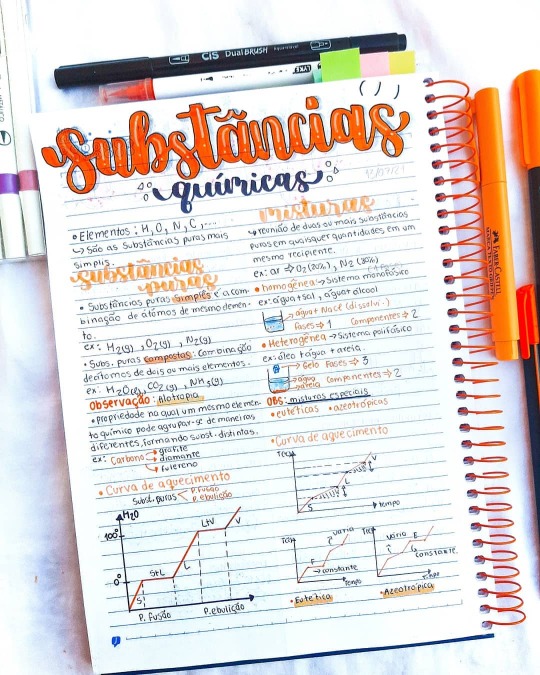 CIS Dual BRUSH
LYKE
substâncias
químicas
• Elementos : H, O, N, C, ....
↳ São as substâncias puras mais
simplis.
substâncias
puras
• Substâncias puras simples é a com-
binação de átomos de mesmo elemen-
to.
ex: H₂(g), O₂(g), N₂(g)
• Subs. puras compostas: Combinação
de átomos de dois ou mais elementos.
ex: H₂O(l), CO₂(g), NH₃(g)
Observação: Alotropia
• propriedade na qual um mesmo elemen-
to químico pode agrupar-se de maneiras
diferentes, formando subst. distintas.
ex: Carbono → grafite
→ diamante
→ fulereno
• Curva de aquecimento
Subst. puras < P. fusão
P. ebulição
H₂O
100°
0°
S
S+L
L
L+V
V
P. fusão P. ebulição
misturas
↳ reunião de duas ou mais substâncias
puras em quaisquer quantidades, em um
mesmo recipiente.
ex: ar ⇒ O₂(20%), N₂
• homogênea → Sistema monofásico
ex: água + sal, água + álcool
→ água + NaCl (dissolv.)
Fases ⇒ 1 Componentes ⇒ 2
• Heterogênea → Sistema polifásico
ex: óleo + água + areia.
→ Gelo Fases ⇒ 3
→ água
→ areia Componentes ⇒ 2
OBS: misturas especiais
• eutéticas • azeotrópicas
• Curva de aquecimento
T(°C)
S
L
V
tempo
T(°C)
varia
F
→ constante
tempo
• Eutética
T(°C)
vário
E
constante
tempo
• Azeotrópica
FABER-CASTELL